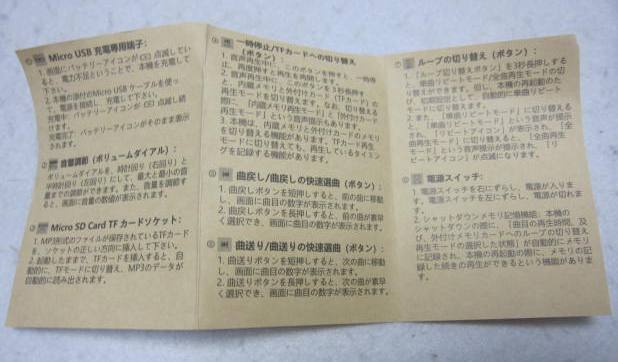 Micro USB 充電専用端子:
1. 画面にバッテリーアイコンが 点滅してい
ると、電力不足ということで、本機を充電して
下さい。
2. 本機の添付のMicro USB ケーブルを使っ
て、電源を接続し、充電して下さい。
充電中: バッテリーアイコンが 点滅し続
けます。
充電完了: バッテリーアイコンがそのまま表示
されます。
音量調節 (ボリュームダイアル):
ボリュームダイアルを、時計回り (右回り) と
半時計回り (左回り) にして、最大と最小の音
量までの調節ができます。また、音量を調節す
ると、画面に音量の数値が表示されます。
Micro SD Card TF カードソケット:
1. MP3形式のファイルが保存されているTFカード
を、ソケットの正しい方向に挿入して下さい。
2. 起動したままで、TFカードを挿入すると、自
動的に、TFモードに切り替え、MP3のデータが
自動的に読み出されます。
一時停止/TFカードへの切り替え
(ボタン):
1. 音声再生中に、このボタンを押すと、一時停
再度押すと再生を再開します。
2. 音声再生中に、このボタンを3秒長押し
すると、内蔵メモリと外付けカード (TFカード) の
再生モードを切り替えます。なお、切り替える
際に、「内蔵メモリ再生モード」と「外付けカード
再生モード」という音声提示もあります。
3. 本機は、内蔵メモリと外付けカードのメモリ
を切り替える機能があります。TFカード再生
モードに切り替えても、再生しているタイミン
グを記録する機能があります。
曲戻し/曲戻しの快速選曲 (ボタン):
1. 曲戻しボタンを短押しすると、前の曲に移動
し、画面に曲目の数字が表示されます。
2. 曲戻しボタンを長押しすると、前の曲が素早
く選択でき、画面に曲目の数字が表示されます。
曲送り/曲送りの快速選曲 (ボタン):
1. 曲送りボタンを短押しすると、次の曲に移動
し、画面に曲目の数字が表示されます。
2. 曲送りボタンを長押しすると、次の曲が素早
く選択でき、画面に曲目の数字が表示されます。
ループの切り替え (ボタン):
1. 「ループ切り替えボタン」を3秒長押しする
と、単曲リピートモード/全曲再生モードの切
り替えができます。但し、本機の再起動のた
び、初期設定として、自動的に単曲リピート
モードに切り替えます。
2. 「単曲リピートモード」に切り替える
と、「単曲リピートモード」という音声が提示
され、「リピートアイコン」が表示され、「全
曲再生モード」に切り替えると、「全曲再生
モード」という音声が提示され、「リ
ピートアイコン」が点滅になります。
電源スイッチ:
1. 電源スイッチを右にずらし、電源が入りま
す。電源スイッチを左にずらし、電源が切れま
す。
2. シャットダウンメモリ記憶機能: 本機の
シャットダウンの際に、「曲目の再生時間、及
び、外付けメモリカードへのループの切り替え
再生モードの選択した状態」が自動的にメモリ
に記録され、本機の再起動の際に、メモリの記
録した続きの再生ができるという機能がありま
す。